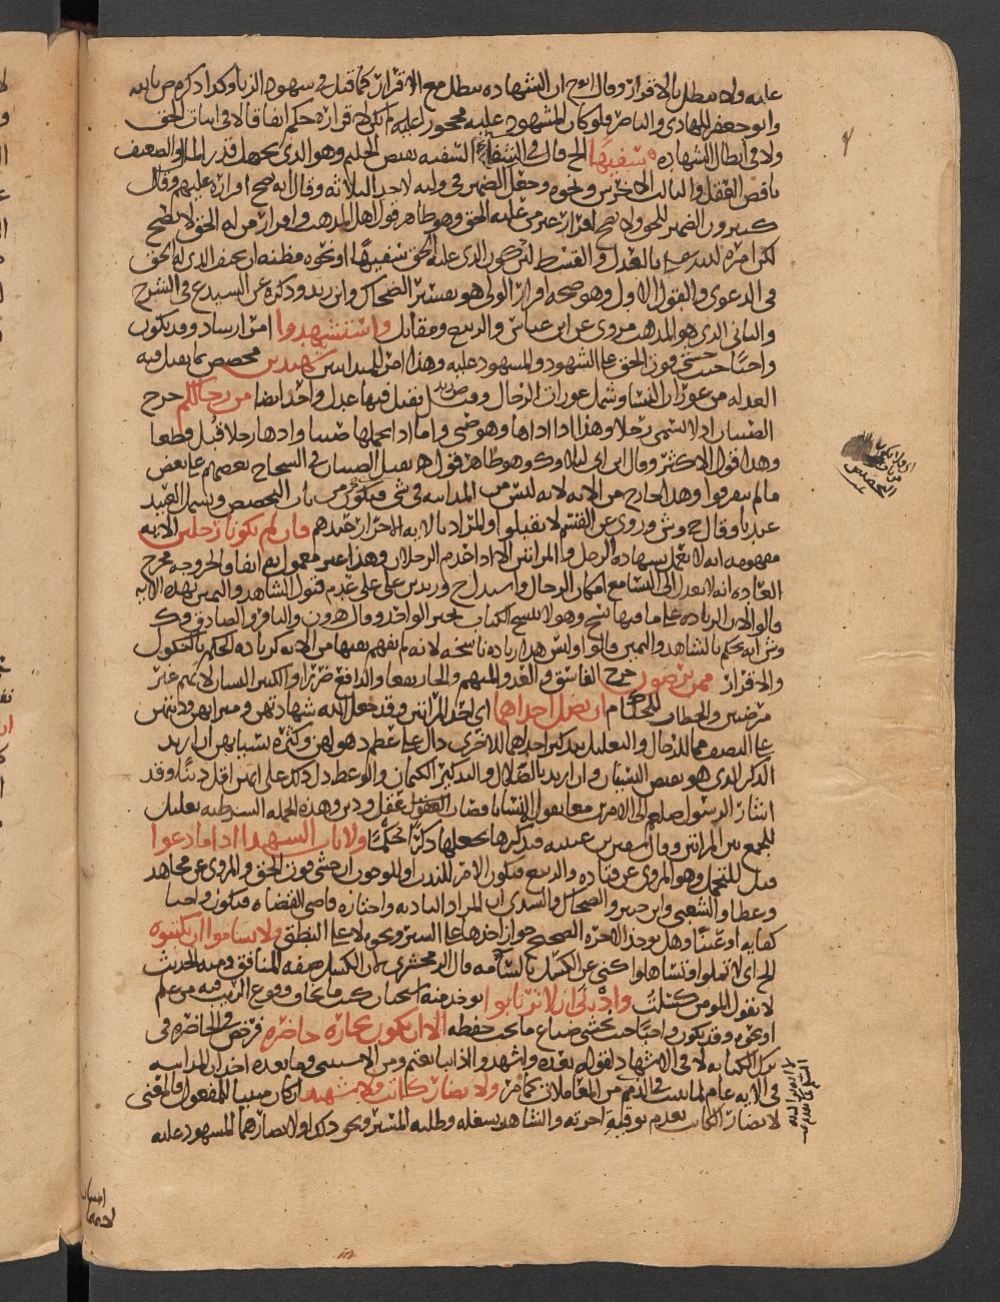 عليه ولا تبطل بالاقرار وقال ابو ح ان الشهاده تبطل مع الاقرار كما قيل في شهود الزنا وكذا ذكره ص بالله
وابو جعفر للهادي والناصر فلو كان المشهود عليه محجورا عليه لم يكن لاقراره حكم اتفاقا لا في اثبات الحق
ولا في ابطال الشهاده سفيها الخ قال في الشفاء السفيه نقيض الحليم وهو الذي يجهل قدر المال والضعيف
ناقص العقل والثالث الاخرس ونحوه وجعل الضمير في وليه لاحد الثلاثه وقال انه صح اقراره عليهم وقال
كثيرون الضمير للحق ولا يصح اقرار غير من عليه الحق وهو ظاهر قول اهل المذهب واقرار من له الحق لا يصح
لكن امره الله بالعدل والقسط لئن كون الذي عليه الحق سفيها او نحوه مظنه ان يحيف الذي له الحق
في الدعوى والقول الاول وهو صحه اقرار الولي هو تفسير الضحاك وابن زيد وذكره عن السيد ع في الشرح
والثاني الذي هو المذهب مروي عن ابن عباس والربيع ومقاتل واستشهدوا امر ارشاد وقد يكون
واجبا حيث خشي فوت الحق على الشهود والمشهود عليه وهذا امر للمتداينين شهيدين مخصص بما يقبل فيه
العداله من عورات النسا وشمل عورات الرجال وقيل تقبل فيها عدل واحد ايضا من رجالكم خرج
الصبيان اذ لا يسمى رجلا وهذا اذا اداها وهو صبي واما اذا تحملها صبيا واداها رجلا قبل قطعا
وهذا قول الاكثر وقال ابن ابي ليلى وك وهو ظاهر قول الهادي يقبل الصبيان في الشجاج بعضهم على بعض
ما لم يتفرقوا وهذا خارج من الايه لانه ليس من المداينه في شي فيكون من باب التخصيص ويشمل العبيد
عندنا وقال ح وش وروي عن القسم لا يقبلوا والمراد بالايه الاحرار عندهم فان لم يكونا رجلين الايه
مفهومه انه لا يعمل بشهاده الرجل والمراتين الا اذا عدم الرجلان وهذا غير معمول به اتفاقا لخروجه مخرج
العاده انه لا يعدل الى النسا مع امكان الرجال واستدل ح وزيد بن علي على عدم قبول الشاهد واليمين بهذه الايه
قالوا لان الزياده على ما فيها نسخ وهو لا ينسخ الكتاب بخبر الواحد وقال هرون والباقر والصادق وك
وش انه يحكم بالشاهد واليمين قالوا وليس هذا زياده ناسخه لانه لم يفهم نفيها من الايه كزياده الحكم بالنكول
والاقرار ممن ترضون خرج الفاسق والعدو والمتهم والجار نفعا والدافع ضررا والكثير النسيان لانهم غير
مرضيين والخطاب للحكام ان تضل احداهما اي احد المراتين وقد جعل الله شهادتهن وميراثهن وديتهن
على النصف مما للرجال والتعليل بتذكير احداهما للاخرى دال على عظم ذهولهن وكثره نسيانهن ان اريد
الذكر الذي هو نقيض النسيان وان اريد بالضلال والتذكير الكتمان والوعظ دل ذلك على انهن اقل دينا وقد
اشار الرسول صلعم الى الامرين معا بقوله النسا ناقصات عقل ودين وهذه الجمله الشرطيه تعليل
للجمع بين المراتين وقال ابن عيينه فتذكرها بجعلها ذكرا حكما ولا ياب الشهدا اذا ما دعوا
قيل للتحمل وهو المروي عن قتاده والربيع فيكون الامر للندب او للوجوب ان خشي فوت الحق والمروي عن مجاهد
وعطا والشعبي وابن جبير والضحاك والسدي ان المراد التاديه واختاره قاضي القضاه فيكون واجبا
كفايه او عينا وهل يوخذ الاجره الصحيح جواز اخذها على السير ونحوه لا على النطق ولا تساموا ان تكتبوه
الخ اي لا تملوا وتتساهلوا كنى عن الكسل بالسامه قال الزمخشري لان الكسل صفه المنافق ومنه الحديث
لا يقول المومن كسلت وادنى ان لا ترتابوا يوخذ منه استحباب كتب ما يخاف وقوع الريب فيه من علم
او نحوه وقد يكون واجبا حيث يخشى ضياع ما يجب حفظه الا ان تكون تجاره حاضره فرخص في الحاضره في
ترك الكتابه لا في الاشهاد لقوله بعده واشهدوا اذا تبايعتم ومن الاستثنى وما بعده اخذ ان المداينه
في الايه عام لما ثبت في الذمم من المعاملات كما مر ولا يضار كاتب ولا شهيد ان كان مبنيا للمفعول فالمعنى
لا يضار الكاتب بعدم توفيه اجرته والشاهد بشغله وطلبه المسير ونحو ذلك او لا يضارهما المشهود عليه